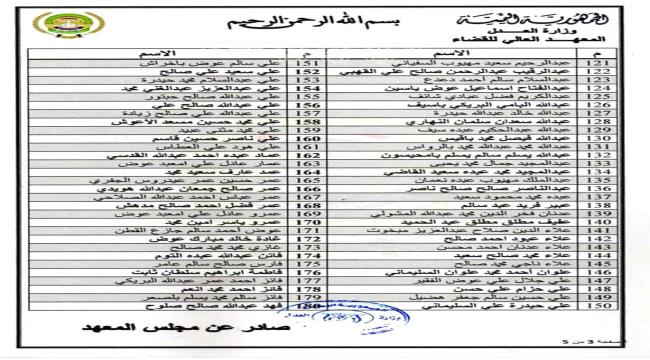 بسم الله الرحمن الرحيم
الجمهورية اليمنية
وزارة العدل
المعهد العالي للقضاء
م الاسم م الاسم
121 عبدالرحيم سعيد مهيوب السفياني 151 علي سالم عوض باخراش
122 عبدالرقيب عبدالرحمن صالح علي القهبي 152 علي سعيد علي صالح
123 عبدالسلام سالم احمد دعدع 153 علي عبدالسلام محمد حيدرة
124 عبدالفتاح اسماعيل عوض ياسين 154 علي عبدالعزيز عبدالغني محمد
125 عبدالكريم فضل عبادي شائف 155 علي عبدالله صالح حبتور
126 عبدالله اليامي البريكي باسيف 156 علي عبدالله صالح علي
127 عبدالله خالد عبدالله حيدرة 157 علي عبدالله علي صالح زيادة
128 عبدالله سعدان سلمان النهاري 158 علي محمد حسين مسعد الأعوش
129 عبدالله عبدالحكيم عبده سيف 159 علي محمد مثنى عبيد
130 عبدالله فيصل محمد باقيس 160 علي ناصر حسين قاسم
131 عبدالله محمد عبدالله محمد بالرواس 161 علي هود علي العطاس
132 عبدالله مسلم سالم يسلم بامحيسون 162 عماد عبده احمد عبدالله القدسي
133 عبدالمجيد جمال محمد يحيى 163 عمار عادل علي امعبد عوض
134 عبدالمجيد محمد عبده سعيد القاضي 164 عمد عارف سعيد محمد
135 عبدالملك مهيوب عبده نعمان 165 عمر حسين عمر عيدروس الجفري
136 عبدالناصر صالح صالح ناصر 166 عمر صالح جمعان عبدالله هويدي
137 عبده محمد محمود سعيد 167 عمر عباس احمد عبدالله الصلاحي
138 عبير فريد عبد سالم 168 عمر فضل احمد صالح مدهش
139 عدنان فخر الدين محمد عبدالله المتولي 169 عمرو عادل علي امعبد عوض
140 عفيف مطلق مطلق عبد الحميد 170 عمرو ياسر امين محمد
141 علاء الدين صلاح عبدالعزيز مبخوت 171 عوض احمد سالم جازع القطن
142 علاء عبود احمد صالح 172 غادة خالد مبارك عوض
143 علاء عدنان احمد محسن 173 غازي محمد محمد صالح
144 علاء محمد صالح سعيد 174 فاتن عبدالله عبده التوم
145 علاء ناجي محمد صالح 175 فارس صالح سالم عامر
146 علوان أحمد محمد علوان السليماني 176 فاطمة ابراهيم سلطان ثابت
147 علي جلال علي عوض الفقير 177 فائز احمد عمر عبدالله البريكي
148 علي حزام علي حسن 178 فائز احمد محمد انعم
149 علي حسين سالم جعفر هضيل 179 فائز سالم محمد يسلم بلصعر
150 علي حيدرة علي السليماني 180 فهد عبدالله صالح صلوح
صادر عن مجلس المعهد
صفحة 3 من 5